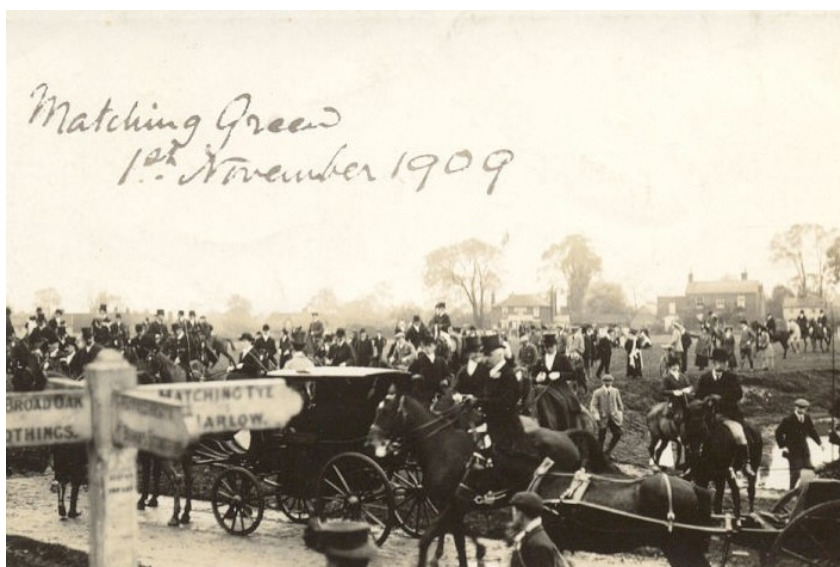 Matching Green
1st November 1909
BROAD OAK
OTHINGS.
MATCHING TYE
HARLOW.